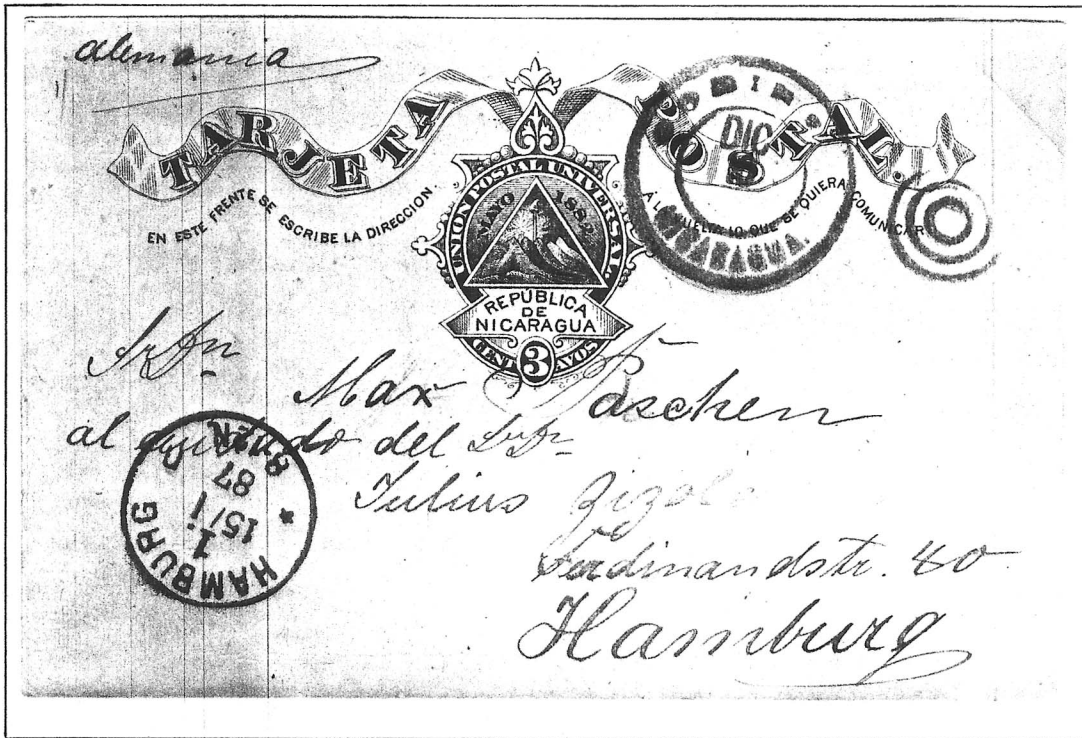 alemania
TARJETA POSTAL.
EN ESTE FRENTE SE ESCRIBE LA DIRECCION. Á LA VUELTA LO QUE SE QUIERA COMUNICAR
UNION POSTAL UNIVERSAL
MAYO 1882
REPÚBLICA
DE
NICARAGUA
CENTAVOS
3
1
DIC
NICARAGUA.
Max Paschen
al cuidado del
Julius
Ferdinandstr. 40
Hamburg
HAMBURG
1.
15/1
87
8-12 N